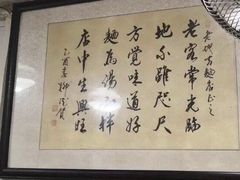 老地方麵店正之
老客常光臨
地小雖咫尺
方覺味道好
麵為湯拌
店中生興旺
乙酉春柳賀